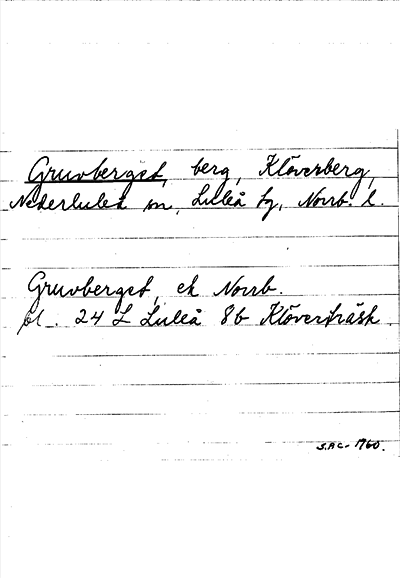 Gruvberget, berg, Klöverberg,
Nederluleå sn, Luleå tg, Norrb. l.
Gruvberget, ek Norrb.
bl. 24 L Luleå 8b Klöverträsk.
S.A.C. 1760.